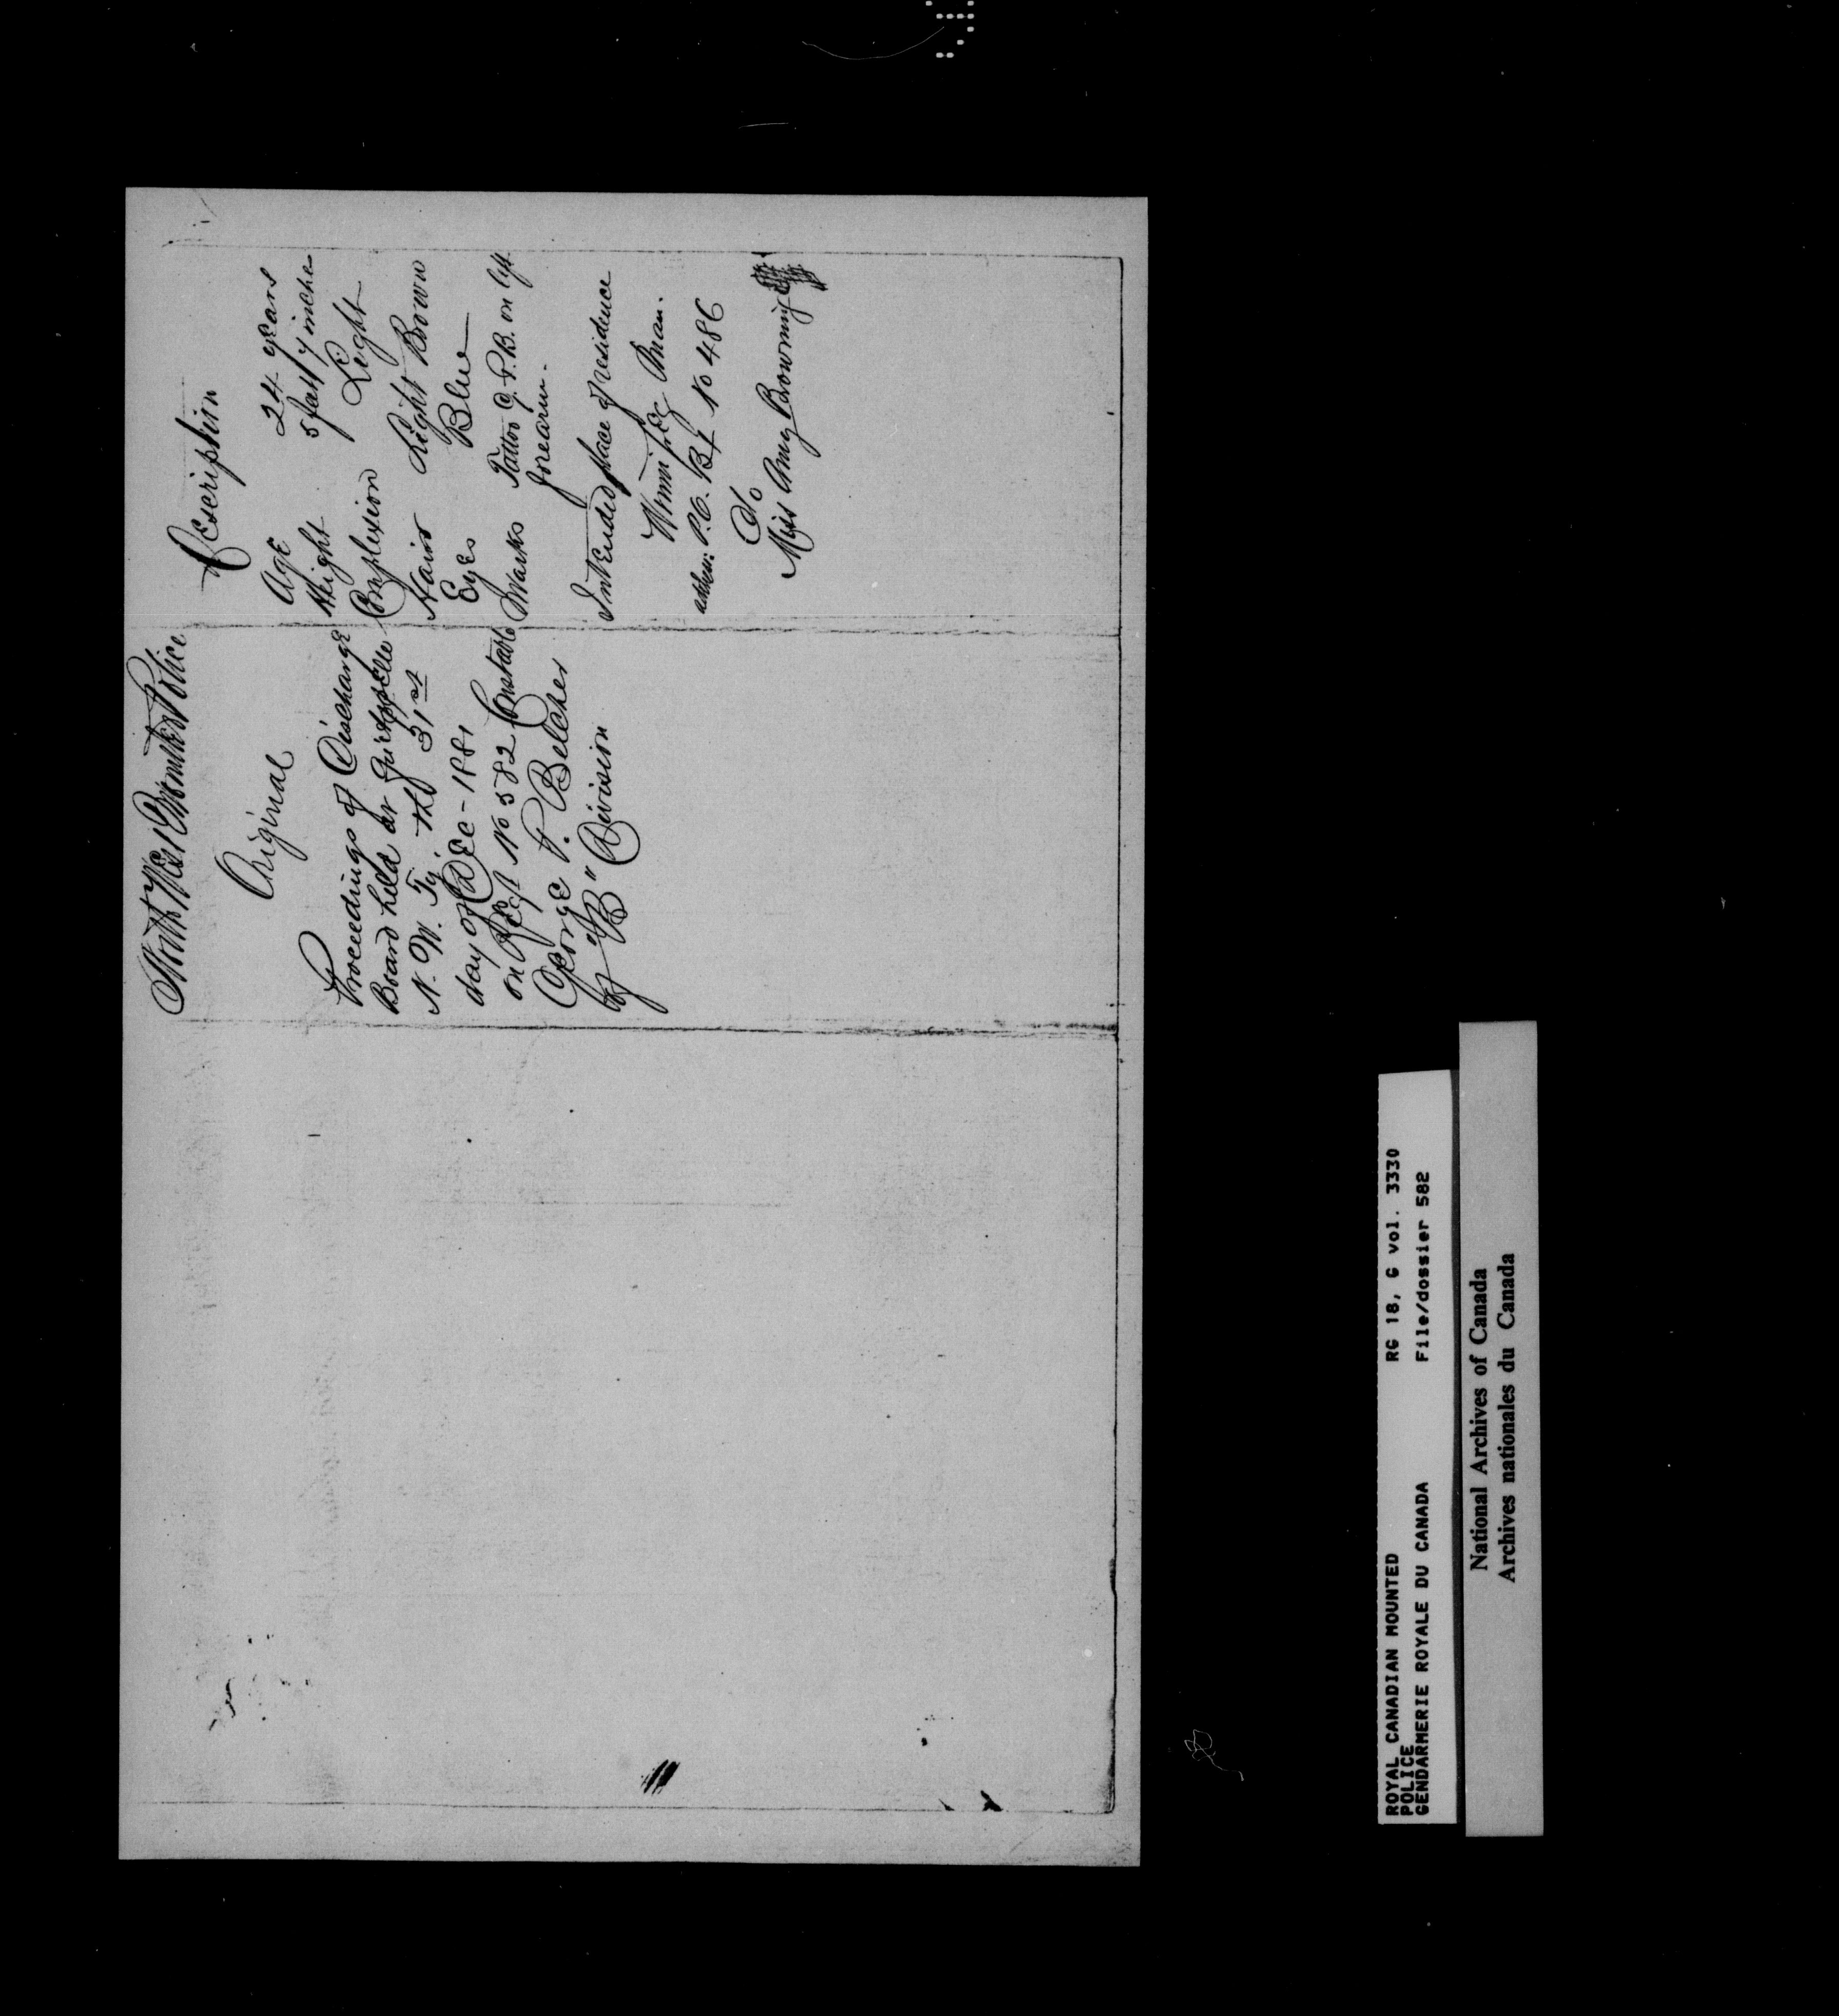 North West Mounted Police
Original
Proceedings of Discharge
Board held at Qu'Appelle
N. W. Ty. the 31st
day of Dec - 1881
on Regt No 582 Constable
George P. Belcher
of "B" Division
Description
Age 24 years
Height 5 feet 7 inche
Complexion Light
Hair Light Brown
Eyes Blue
Marks Tattoo G.P.B. on left
forearm.
Intended place of residence
Winnipeg Man.
address: P.O. Bx No 486
C/o
Miss Amy Browning
ROYAL CANADIAN MOUNTED RG 18, G vol. 3330
POLICE
GENDARMERIE ROYALE DU CANADA File/dossier 582
National Archives of Canada
Archives nationales du Canada